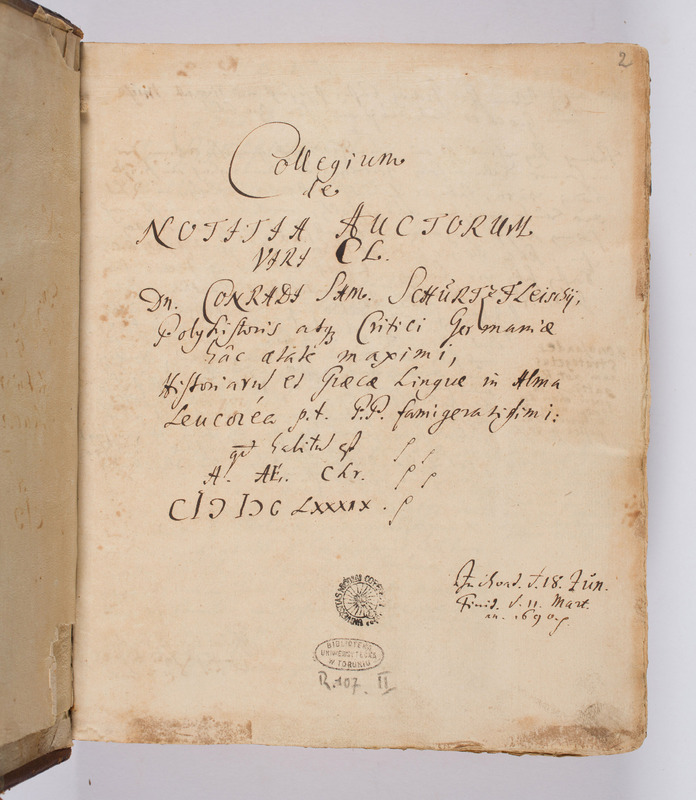 2
Collegium
de
NOTITIA AUCTORUM
VIRI CL.
Dn. CONRADI SAM. SCHÜRTZFLeischij,
Polyhistoris atq; Critici Germaniæ
hâc ætate maximi,
Historiarū et Græcæ Linguæ in Alma
Leucoréa p.t. P.P. famigeratissimi:
qd habitū est
A. Æ. Chr.
CIƆ IƆC LXXXIX.
Inchoat. d. 18. Jun.
Finit. d. 11. Mart.
an. 1690.
BIBLIOTEKA
UNIWERSYTECKA
W TORUNIU
R.107. II